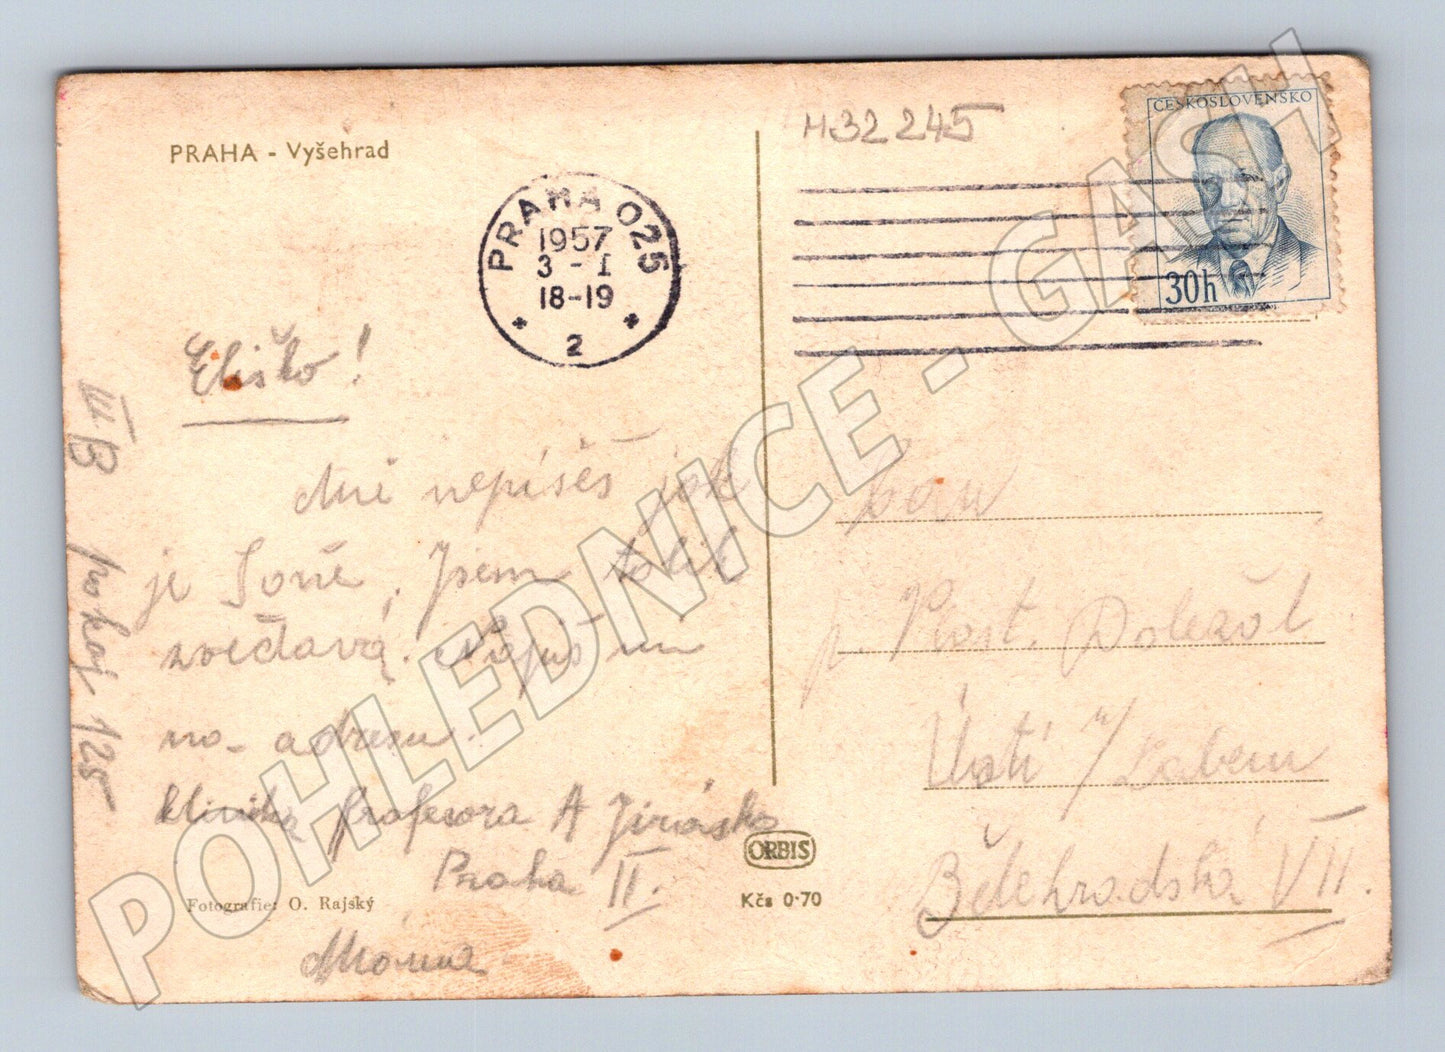 PRAHA - Vyšehrad
H32245
ČESKOSLOVENSKO
30h
PRAHA 025
1957
3 - I
18-19
2
Eliško!
Mně nepíšeš jak
je Soně, Jsem tolik
zvědavá. Napiš mi
na adresu.
klinika profesora A Jiráska
Praha II.
Mařena
III B pokoj 125
Fotografie: O. Rajský
ORBIS
Kčs 0·70
pan
Rost. Doležal
Ústí n/Labem
Bělehradská VII.
POHLEDNICE - GASH